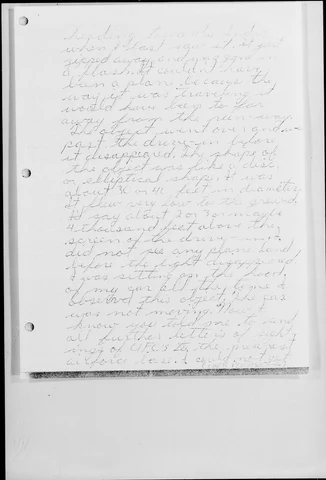 when I last saw it. it just
zipped away and was gone in
a flash. it couldn't have
been a plane because the
way it was traveling it
would have been to far
away from the
The object went over and
past the drive-in before
it disappeared. The shape of
the object was like a disc
or eliptical shape. it was
about 30 or 40 feet in diameter
it flew very low to the ground
I'd say about 2 or 3 or maybe
4 thousand feet above the
screen of the drive-in. I
did not see any plane land
before the light disappeared
I was sitting on the hood
of my car all the time I
observed this object, the car
was not moving. Now I
know you told me to send
all further letters of sight
ings of U.F.O's to the nearest
airforce base. I could not get